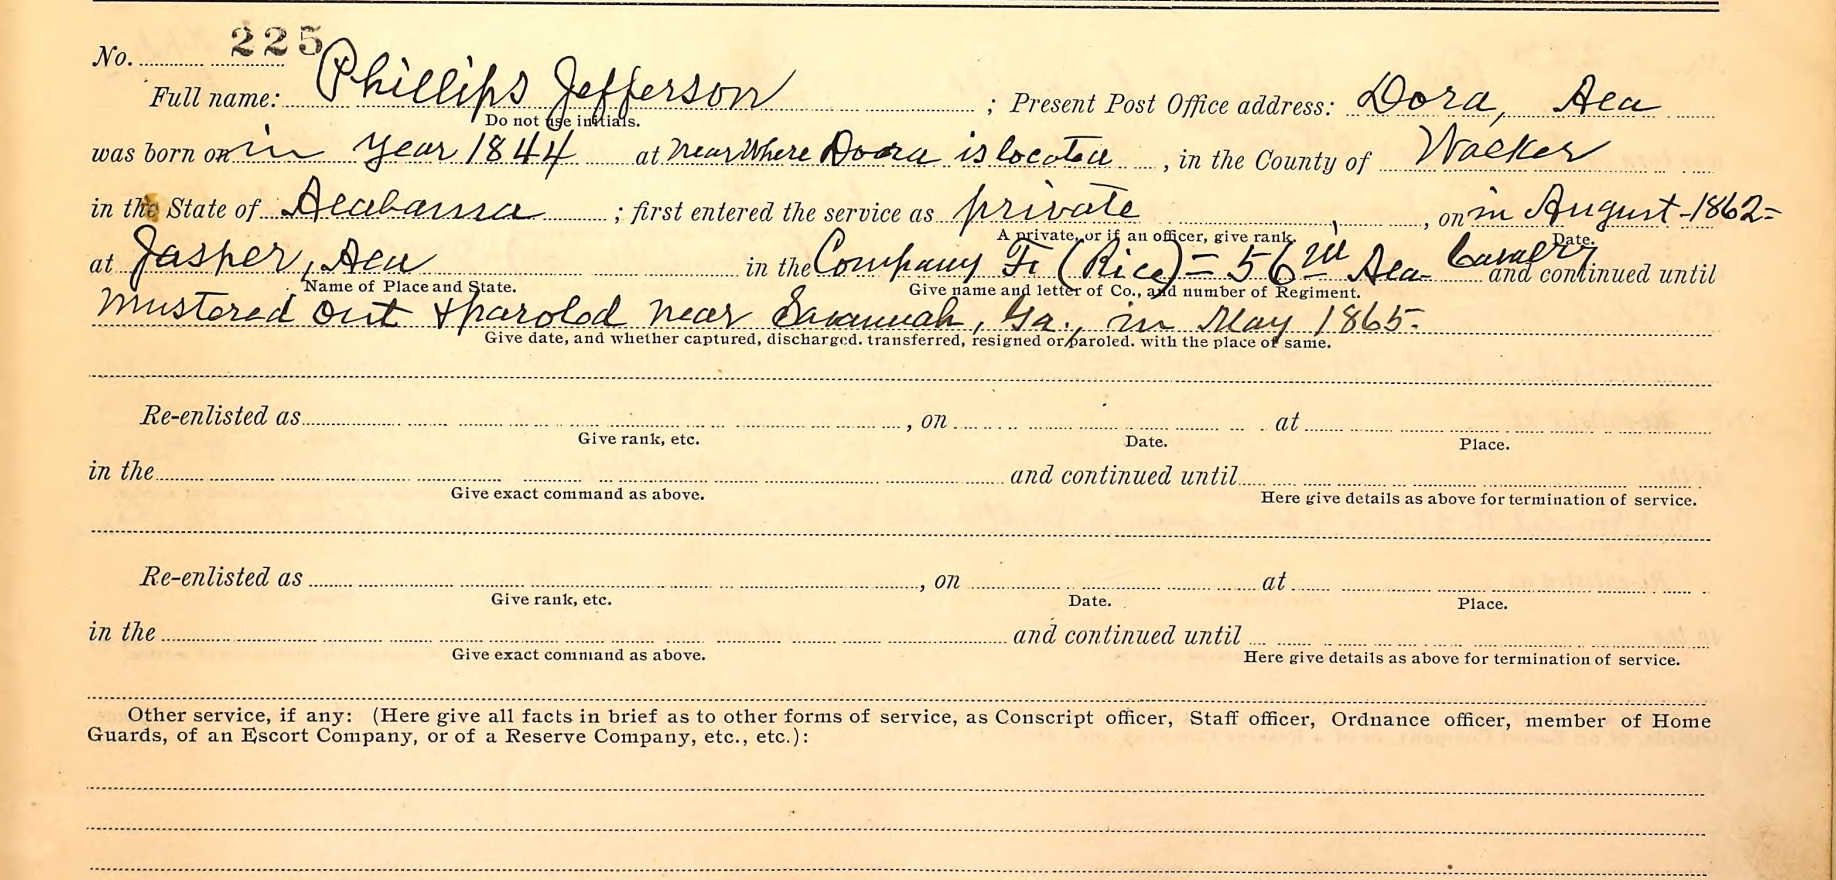 No. 225
Full name: Phillips Jefferson ; Present Post Office address: Dora, Ala
Do not use initials.
was born on in year 1844 at near Where Doora is located , in the County of Walker
in the State of Alabama ; first entered the service as private , on in August - 1862 =
A private, or if an officer, give rank. Date.
at Jasper, Ala in the Company F. (Rice) = 56th Ala. Cavalry and continued until
Name of Place and State. Give name and letter of Co., and number of Regiment.
Mustered out & paroled near Savannah, Ga., in May 1865.
Give date, and whether captured, discharged. transferred, resigned or paroled. with the place of same.
Re-enlisted as , on at
Give rank, etc. Date. Place.
in the and continued until
Give exact command as above. Here give details as above for termination of service.
Re-enlisted as , on at
Give rank, etc. Date. Place.
in the and continued until
Give exact command as above. Here give details as above for termination of service.
Other service, if any: (Here give all facts in brief as to other forms of service, as Conscript officer, Staff officer, Ordnance officer, member of Home
Guards, of an Escort Company, or of a Reserve Company, etc., etc.):